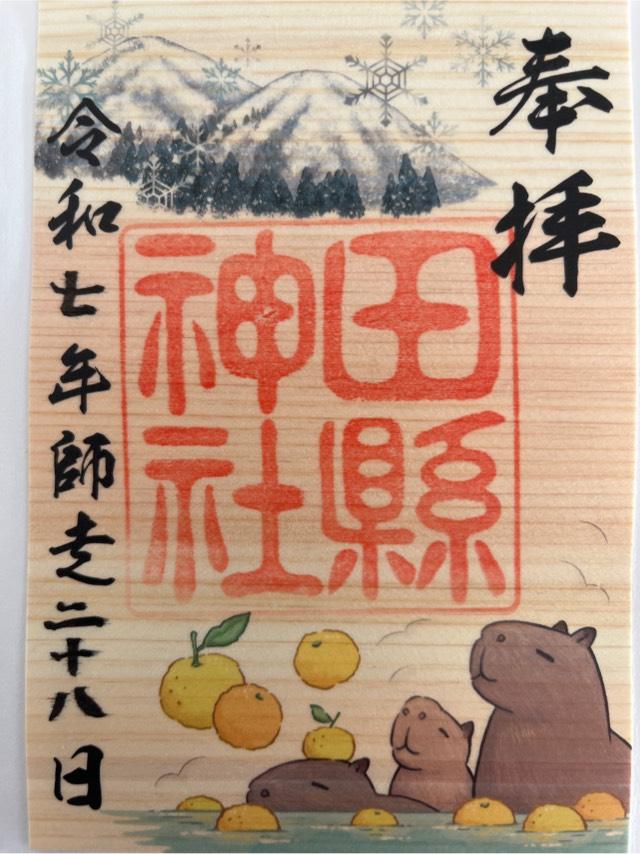 奉拝
田縣
神社
令和七年師走二十八日